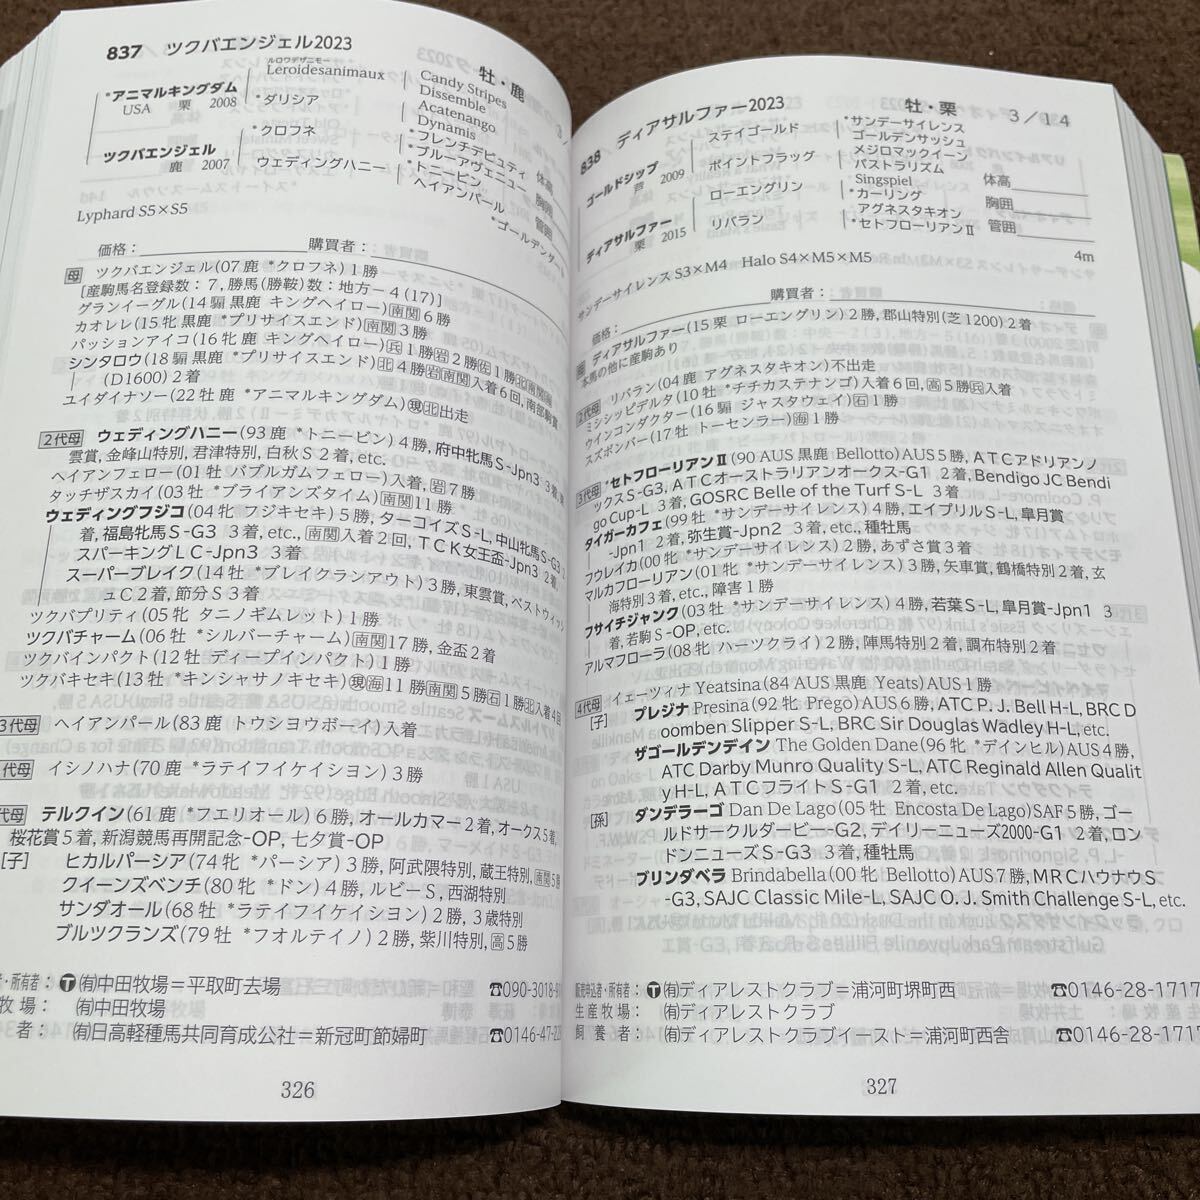 837 ツクバエンジェル2023
牡・鹿
*アニマルキングダム
USA 栗 2008
ルロワデザニモー
Leroidesanimaux
Candy Stripes
Dissemble
*ダリシア
Acatenango
Dynamis
ツクバエンジェル
鹿 2007
*クロフネ
*フレンチデピュティ
*ブルーアヴェニュー
ウェディングハニー
*トニービン
ヘイアンパール
体高
胸囲
管囲
Lyphard S5×S5
価格：
購買者：
母 ツクバエンジェル(07 鹿 *クロフネ) 1勝
[産駒馬名登録数：7, 勝馬(勝鞍)数：地方-4 (17)]
グランイーグル(14 騸 黒鹿 キングヘイロー) 南関 6勝
カオレレ(15 牝 黒鹿 *プリサイスエンド) 南関 3勝
パッションアイコ(16 牝 鹿 キングヘイロー) 兵 1勝 岩 2勝 佐 1勝
シンタロウ(18 騸 黒鹿 *プリサイスエンド) 北 4勝 岩 南関 入着6回, 南部駒賞
(D1600) 2着
ユイダイナソー(22 牡 鹿 *アニマルキングダム) 現 北 出走
2代母 ウェディングハニー(93 鹿 *トニービン) 4勝, 府中牝馬S-Jpn3 3着
雲賞, 金峰山特別, 君津特別, 白秋S 2着, etc.
ヘイアンフェロー(01 牡 バブルガムフェロー) 入着, 岩 7勝
タッチザスカイ(03 牡 *ブライアンズタイム) 南関 11勝
ウェディングフジコ(04 牝 フジキセキ) 5勝, ターコイズS-L, 中山牝馬S-G3
着, 福島牝馬S-G3 3着, etc., 南関 入着2回, TCK女王盃-Jpn3 2着
スパーキングLC-Jpn3 3着
スーパーブレイク(14 牡 *ブレイクランアウト) 3勝, 東雲賞, ベストウィッシ
ュC 2着, 節分S 3着
ツクバプリティ(05 牝 タニノギムレット) 1勝
ツクバチャーム(06 牡 *シルバーチャーム) 南関 17勝, 金盃 2着
ツクバインパクト(12 牡 ディープインパクト) 1勝
ツクバキセキ(13 牡 *キンシャサノキセキ) 現 海 11勝 南関 5勝 石 1勝 北 入着4回
3代母 ヘイアンパール(83 鹿 トウショウボーイ) 入着
代母 イシノハナ(70 鹿 *ラテイフイケイシヨン) 3勝
代母 テルクイン(61 鹿 *フエリオール) 6勝, オールカマー 2着, オークス 5着,
桜花賞 5着, 新潟競馬再開記念-OP, 七夕賞-OP
[子] ヒカルパーシア(74 牝 *パーシア) 3勝, 阿武隈特別, 蔵王特別, 南関 5勝
クイーンズベンチ(80 牝 *ドン) 4勝, ルビーS, 西湖特別
サンダオール(68 牡 *ラテイフイケイシヨン) 2勝, 3歳特別
ブルツクランズ(79 牡 *フオルテイノ) 2勝, 紫川特別, 高 5勝
者・所有者：Ⓣ(有)中田牧場＝平取町去場 ☎090-3018-9
牧場：(有)中田牧場
者：(有)日高軽種馬共同育成公社＝新冠町節婦町 ☎0146-47-2
326
838 ディアサルファー2023
牡・栗 3／14
ゴールドシップ
芦 2009
ステイゴールド
*サンデーサイレンス
ゴールデンサッシュ
ポイントフラッグ
メジロマックイーン
パストラリズム
ディアサルファー
栗 2015
ローエングリン
Singspiel
*カーリング
リバラン
アグネスタキオン
*セトフローリアンⅡ
体高
胸囲
管囲
4m
サンデーサイレンス S3×M4 Halo S4×M5×M5
価格：
購買者：
母 ディアサルファー(15 栗 ローエングリン) 2勝, 郡山特別(芝1200) 2着
本馬の他に産駒あり
2代母 リバラン(04 鹿 アグネスタキオン) 不出走
ミシシッピデルタ(10 牡 *チチカステナンゴ) 入着6回, 高 5勝 兵 入着
ウインコンダクター(16 騸 ジャスタウェイ) 石 1勝
スズボンバー(17 牡 トーセンラー) 海 1勝
3代母 *セトフローリアンⅡ(90 AUS 黒鹿 Bellotto) AUS 5勝, ATCアドリアンノ
ックスS-G3, ATCオーストラリアンオークス-G1 2着, Bendigo JC Bendi
go Cup-L 3着, GOSRC Belle of the Turf S-L 3着
タイガーカフェ(99 牡 *サンデーサイレンス) 4勝, エイプリルS-L, 皐月賞
-Jpn1 2着, 弥生賞-Jpn2 3着, etc., 種牡馬
フウレイカ(00 牝 *サンデーサイレンス) 2勝, あずさ賞 3着
マルカフローリアン(01 牝 *サンデーサイレンス) 3勝, 矢車賞, 鶴橋特別 2着, 玄
海特別 3着, etc., 障害1勝
フサイチジャンク(03 牡 *サンデーサイレンス) 4勝, 若葉S-L, 皐月賞-Jpn1 3
着, 若駒S-OP, etc.
アルマフローラ(08 牝 ハーツクライ) 2勝, 陣馬特別 2着, 調布特別 2着
4代母 イェーツィナ Yeatsina(84 AUS 黒鹿 Yeats) AUS 1勝
[子] プレジナ Presina(92 牝 Prego) AUS 6勝, ATC P. J. Bell H-L, BRC D
oomben Slipper S-L, BRC Sir Douglas Wadley H-L, etc.
ザゴールデンデイン The Golden Dane(96 牝 *デインヒル) AUS 4勝,
ATC Darby Munro Quality S-L, ATC Reginald Allen Qualit
y H-L, ATCフライトS-G1 2着, etc.
[孫] ダンデラーゴ Dan De Lago(05 牡 Encosta De Lago) SAF 5勝, ゴー
ルドサークルダービー-G2, デイリーニューズ2000-G1 2着, ロン
ドンニューズS-G3 3着, 種牡馬
ブリンダベラ Brindabella(00 牝 Bellotto) AUS 7勝, MRCハウナウS
-G3, SAJC Classic Mile-L, SAJC O. J. Smith Challenge S-L, etc.
販売申込者・所有者：Ⓣ(有)ディアレストクラブ＝浦河町堺町西 ☎0146-28-1717
生産牧場：(有)ディアレストクラブ
飼養者：(有)ディアレストクラブイースト＝浦河町西舎 ☎0146-28-1717
327